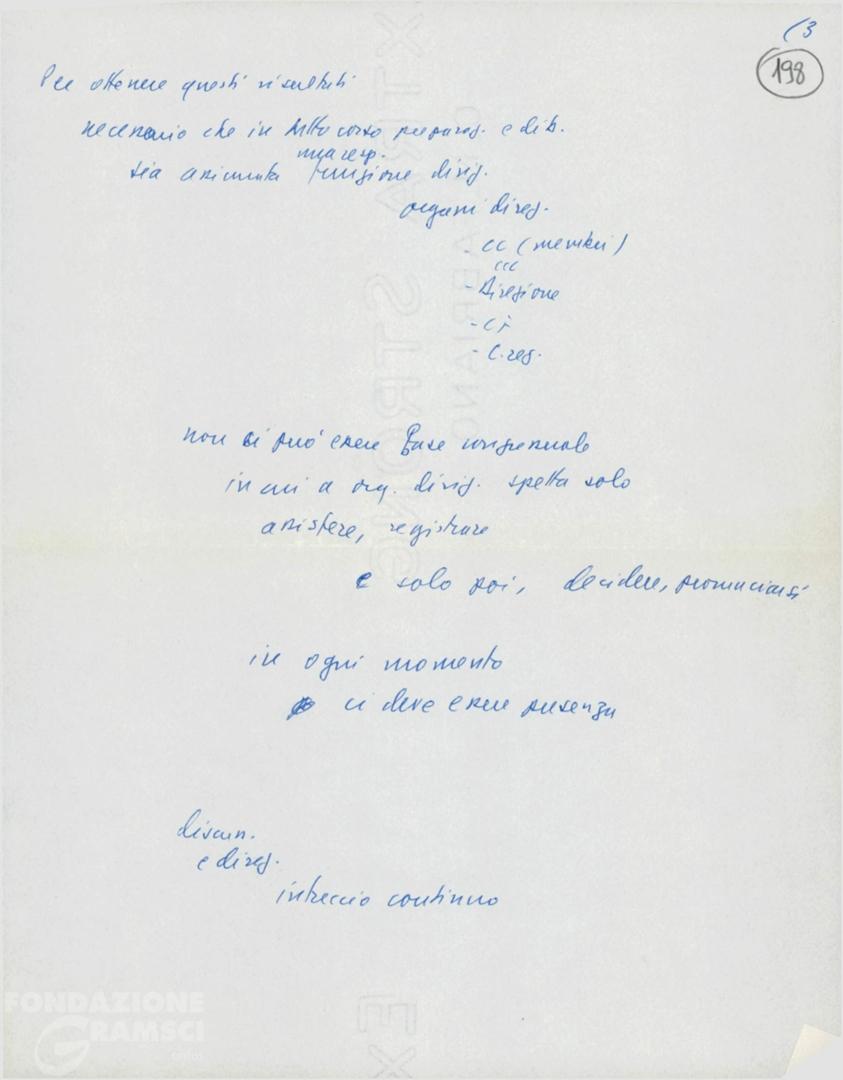 13
198
Per ottenere questi risultati
necessario che in tutto corso preparaz. e dib.
una resp.
sia assicurata funzione dirig.
organi direz.
- CC (membri)
CCC
- Direzione
- C. reg.
non ci può essere fase congressuale
in cui a org. dirig. spetta solo
assistere, registrare
e solo poi, decidere, pronunciarsi
in ogni momento
ci deve essere presenza
discuss.
e direz.
intreccio continuo
FONDAZIONE
GRAMSCI
onlus
EXTRA STRONG
EX